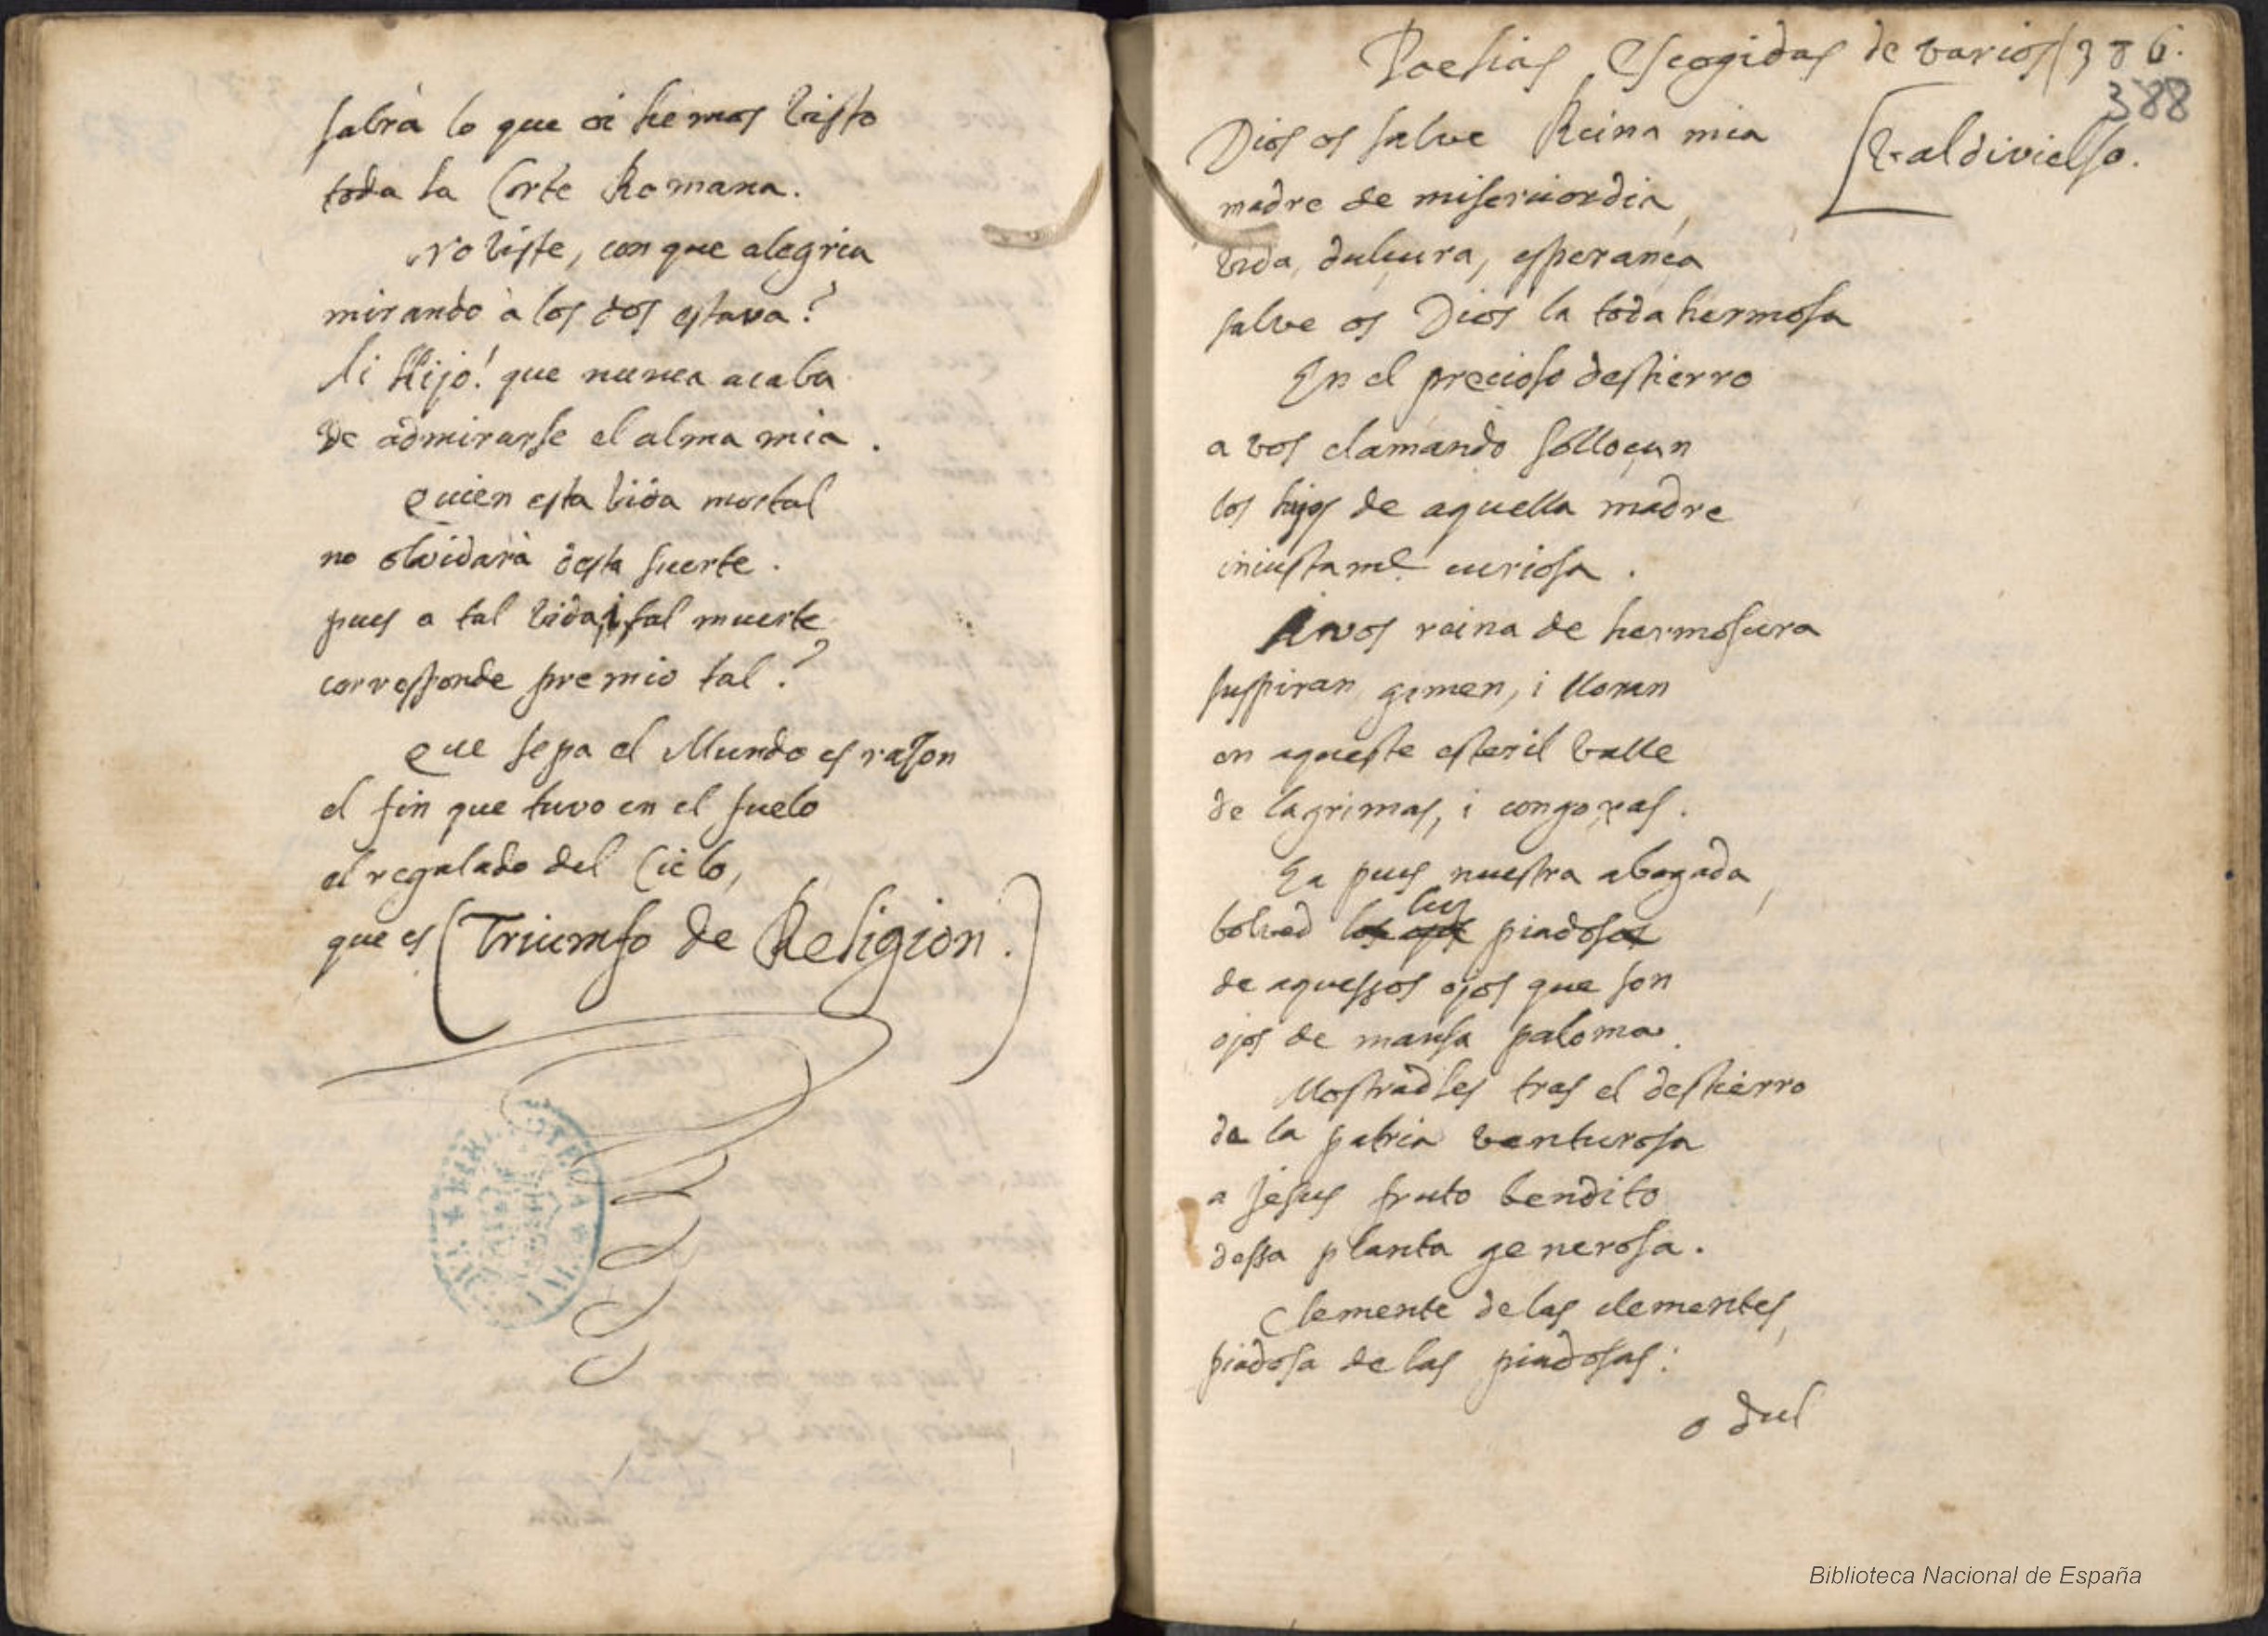 sabrà lo que oi hemos visto
toda la Corte Romana.
No viste, con que alegria
mirando à los dos estava?
Ai Hijo! que nunca acaba
de admirarse el alma mia.
Quien esta vida mortal
no olvidarà desta suerte.
pues a tal vida, i tal muerte
corresponde premio tal?
Que sepa el Mundo es rason
el fin que tuvo en el suelo
el regalado del Cielo,
que es (Triumfo de Religion.)
Poesias Escogidas de varios 386.
388
[Valdivielso.
Dios os salve Reina mia
madre de misericordia,
vida, dulçura, esperança
salve os Dios la toda hermosa
En el precioso destierro
a vos clamando solloçan
los hijos de aquella madre
iniustamᵉ. curiosa.
A vos reina de hermosura
suspiran, gimen, i lloran
en aqueste esteril valle
de lagrimas, i congoxas.
Ea pues nuestra abogada,
luz
bolved los ojos piadosos
de aquessos ojos que son
ojos de mansa paloma.
Mostradles tras el destierro
de la patria venturosa
a Jesus fruto bendito
dessa planta generosa.
Clemente de las clementes,
piadosa de las piadosas:
o dul
Biblioteca Nacional de España